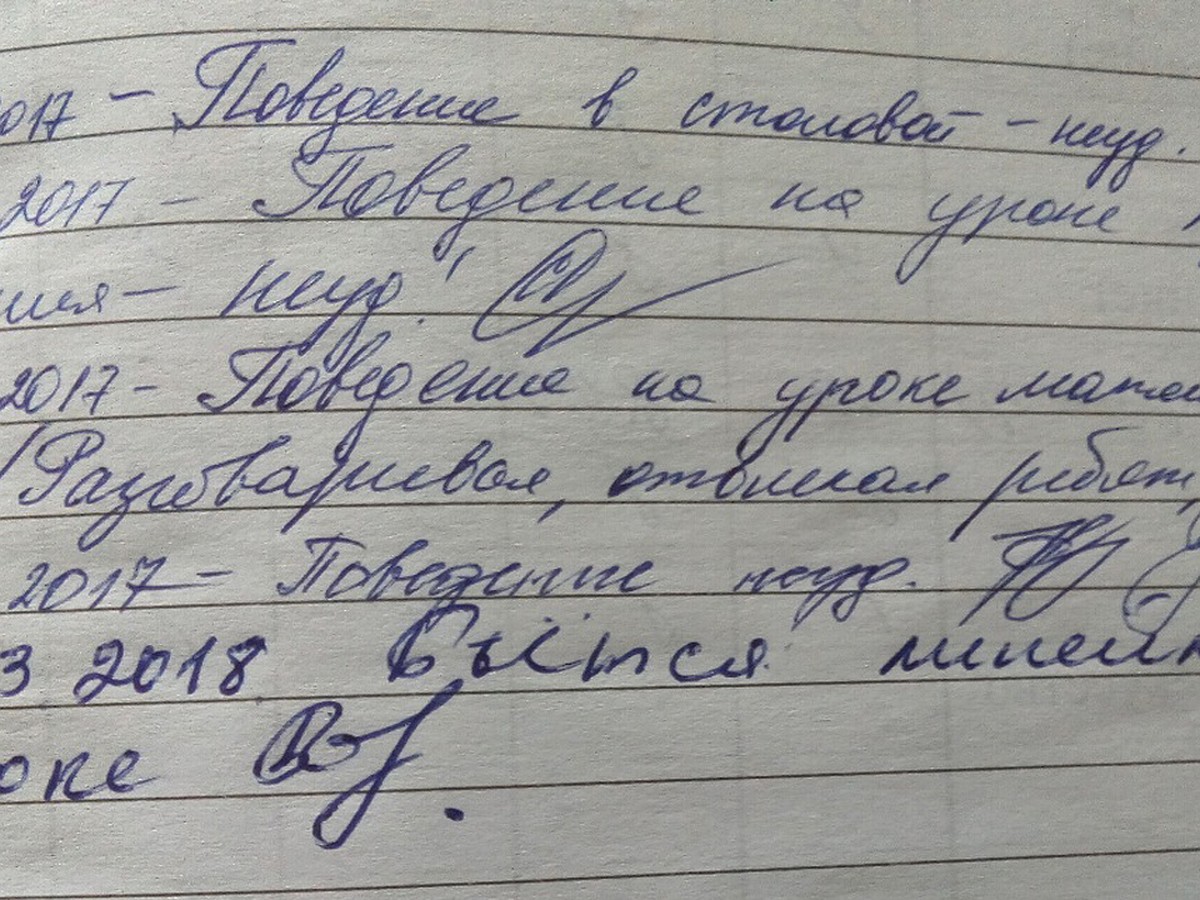 2017 - Поведение в столовой - неуд.
2017 - Поведение на уроке
ния - неуд!
2017 - Поведение на уроке матем
Разговаривал, отвлекал ребят,
2017 - Поведение неуд.
3 2018 Бьётся линейк
оке